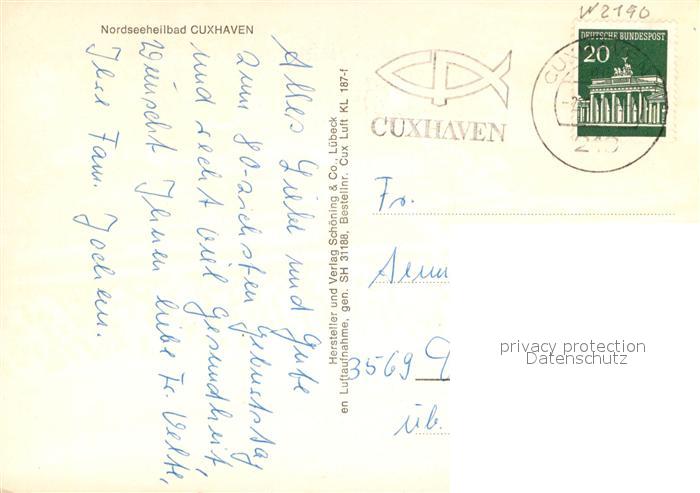 Nordseeheilbad CUXHAVEN
Alles Liebe und Gute
zum 80-zichsten Geburtstag
und recht viel Gesundheit,
Wünscht Ihnen liebe Fr. Velte,
Ihre Fam. Jochem.
Hersteller und Verlag Schöning & Co., Lübeck
en Luftaufnahme, gen. SH 31188, Bestellnr. Cux Luft KL 187-f
W2190
DEUTSCHE BUNDESPOST
20
CUXHAVEN
CUX
Fr.
3569
üb.
privacy protection
Datenschutz